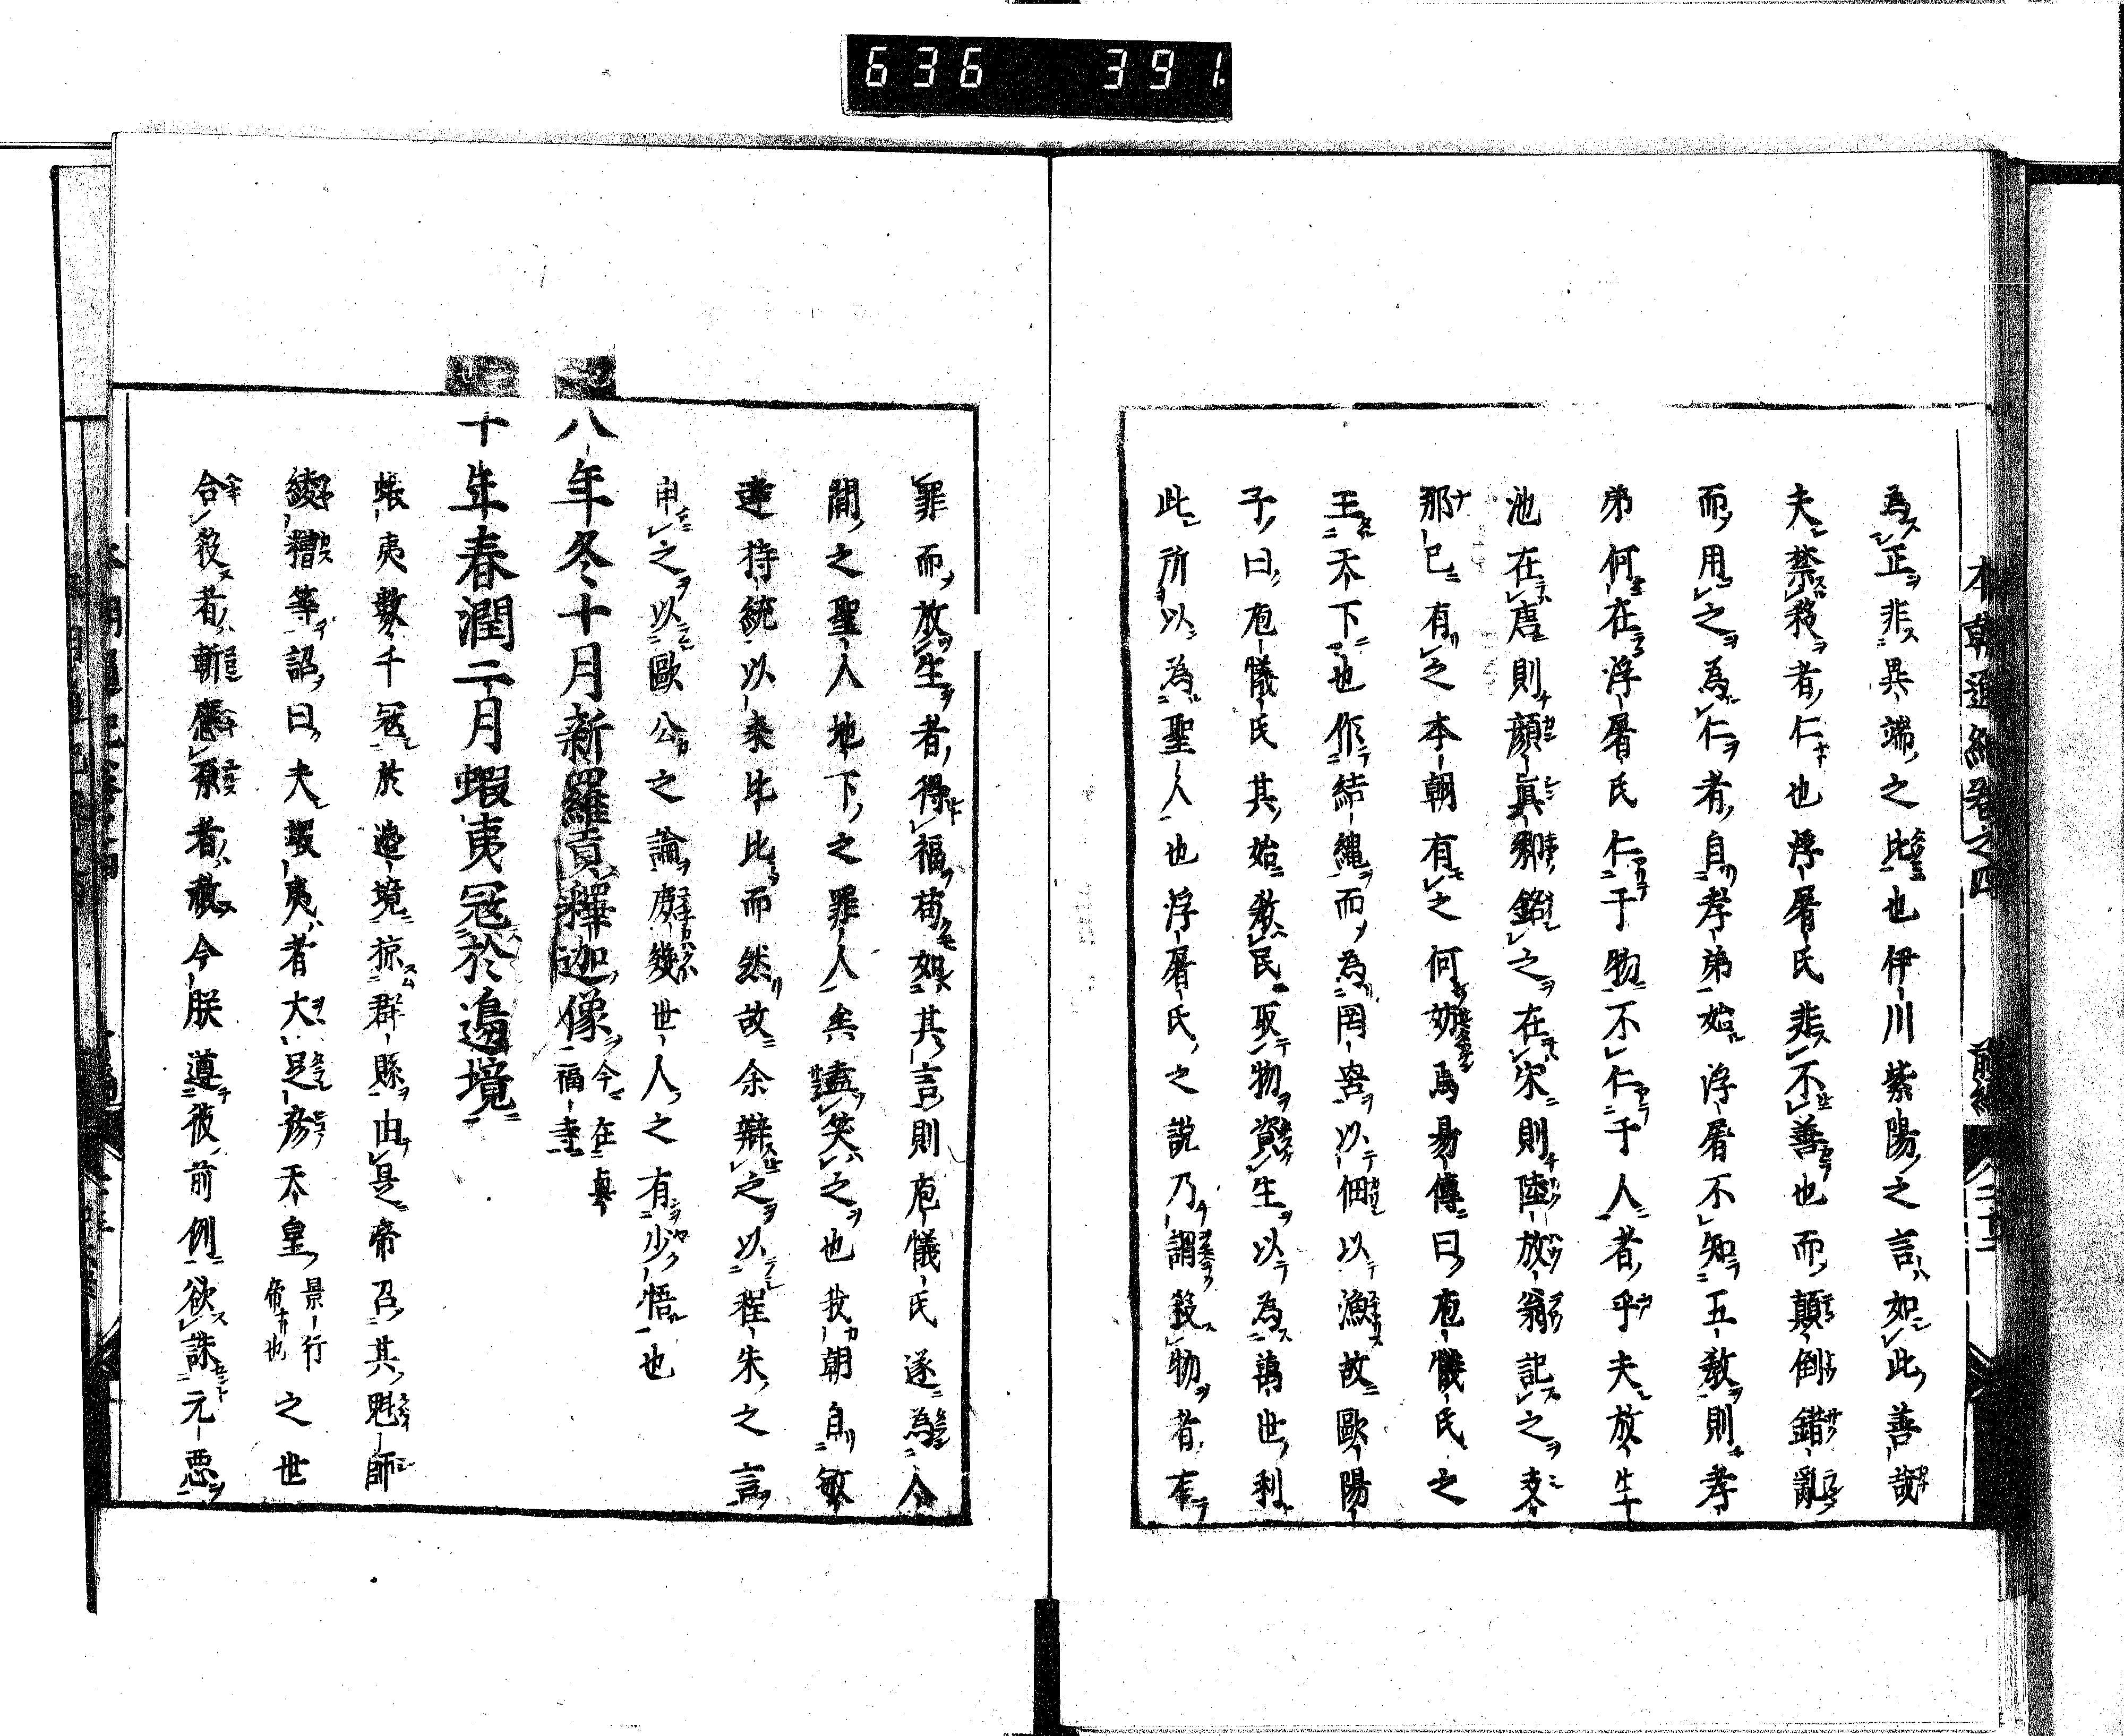 636 391
本朝通紀卷之四 前編
為正非異端之比也伊川紫陽之言如此善哉
夫禁殺者仁也浮屠氏非不善也而顛倒錯亂
而用之為仁者自孝弟始浮屠不知五教則孝
弟何在浮屠氏仁于物不仁于人者乎夫放生
池在唐則顔真卿銘之在宋則陸放翁記之支
那已有之本朝有之何妨焉易傳曰庖犧氏之
王天下也作結繩而為罔罟以佃以漁故歐陽
子曰庖犧氏其始教民取物資生以為萬世利
此所以為聖人也浮屠氏之說乃謂殺物者有
罪而放生者得福苟如其言則庖犧氏遂為人
間之聖人地下之罪人矣盍笑之也我朝自敏
達持統以来比比而然故余辯之以程朱之言
申之以歐公之論庶幾世人之有少悟也
八年冬十月新羅貢釋迦像今在眞福寺
十年春潤二月蝦夷寇於邊境
蝦夷數千寇於邊境掠群縣由是帝召其魁師
綾糟等詔曰夫蝦夷者大足彦天皇景行帝也之世
合殺者斬應原者赦今朕遵彼前例欲誅元悪